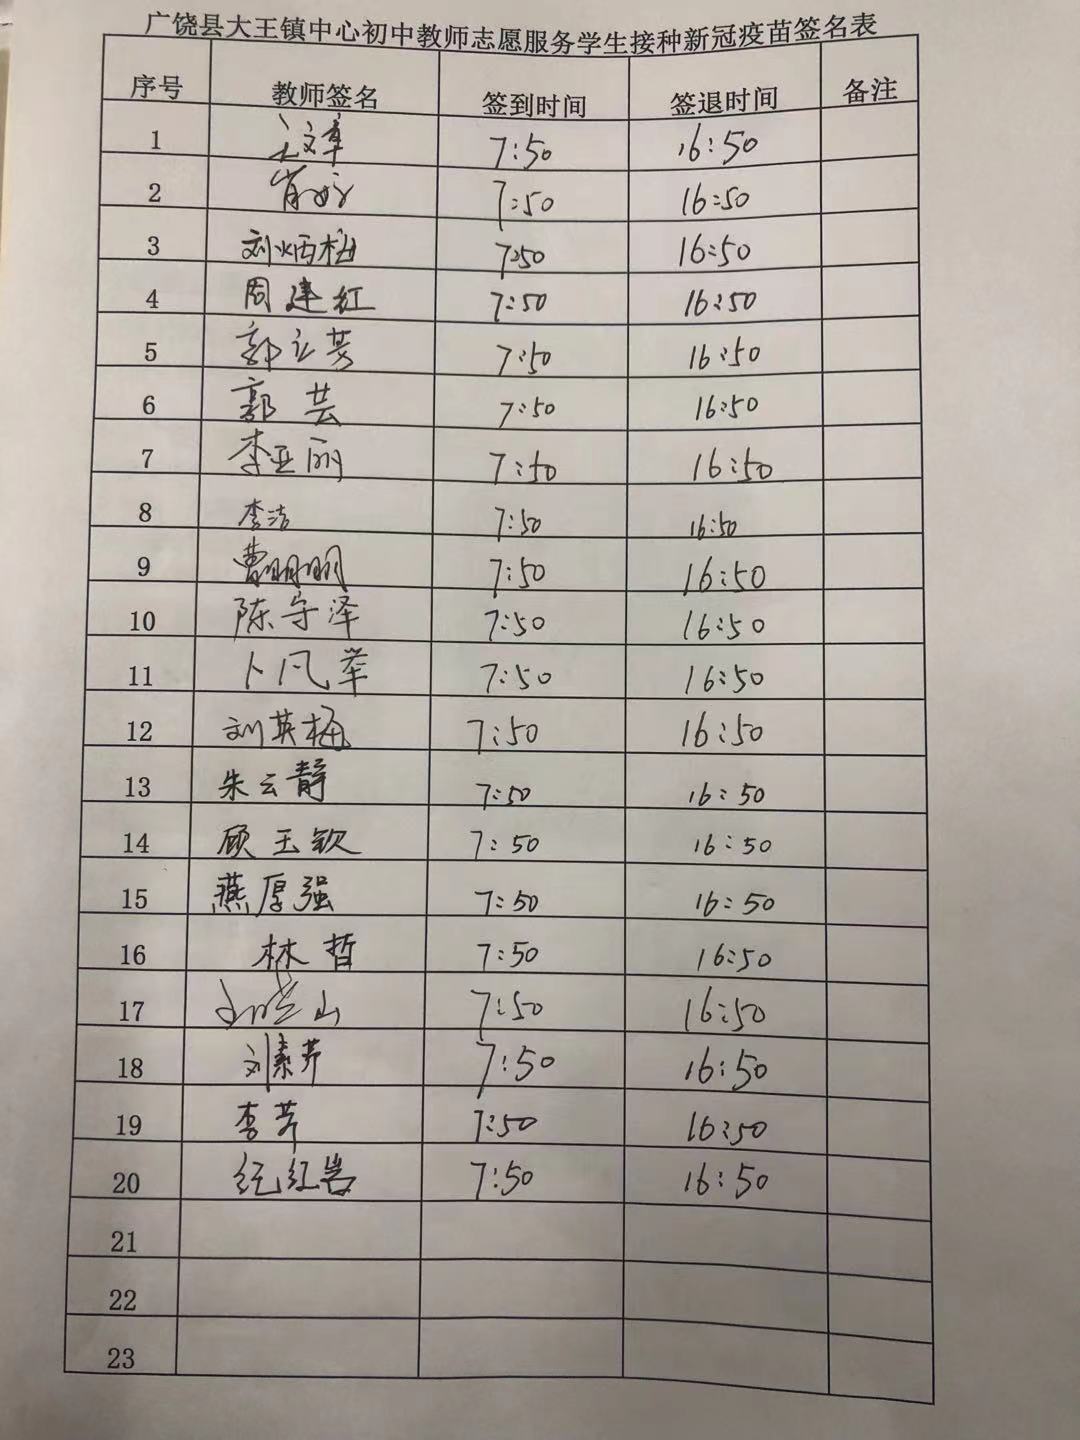 广饶县大王镇中心初中教师志愿服务学生接种新冠疫苗签名表
序号 教师签名 签到时间 签退时间 备注
1 文章 7:50 16:50
2 7:50 16:50
3 刘炳梅 7:50 16:50
4 周建红 7:50 16:50
5 郭立芳 7:50 16:50
6 郭芸 7:50 16:50
7 李亚丽 7:50 16:50
8 李洁 7:50 16:50
9 曹明明 7:50 16:50
10 陈守泽 7:50 16:50
11 卜凡举 7:50 16:50
12 刘英梅 7:50 16:50
13 朱云静 7:50 16:50
14 顾玉钦 7:50 16:50
15 燕厚强 7:50 16:50
16 林哲 7:50 16:50
17 山 7:50 16:50
18 刘素芹 7:50 16:50
19 李芹 7:50 16:50
20 纪红岩 7:50 16:50
21
22
23